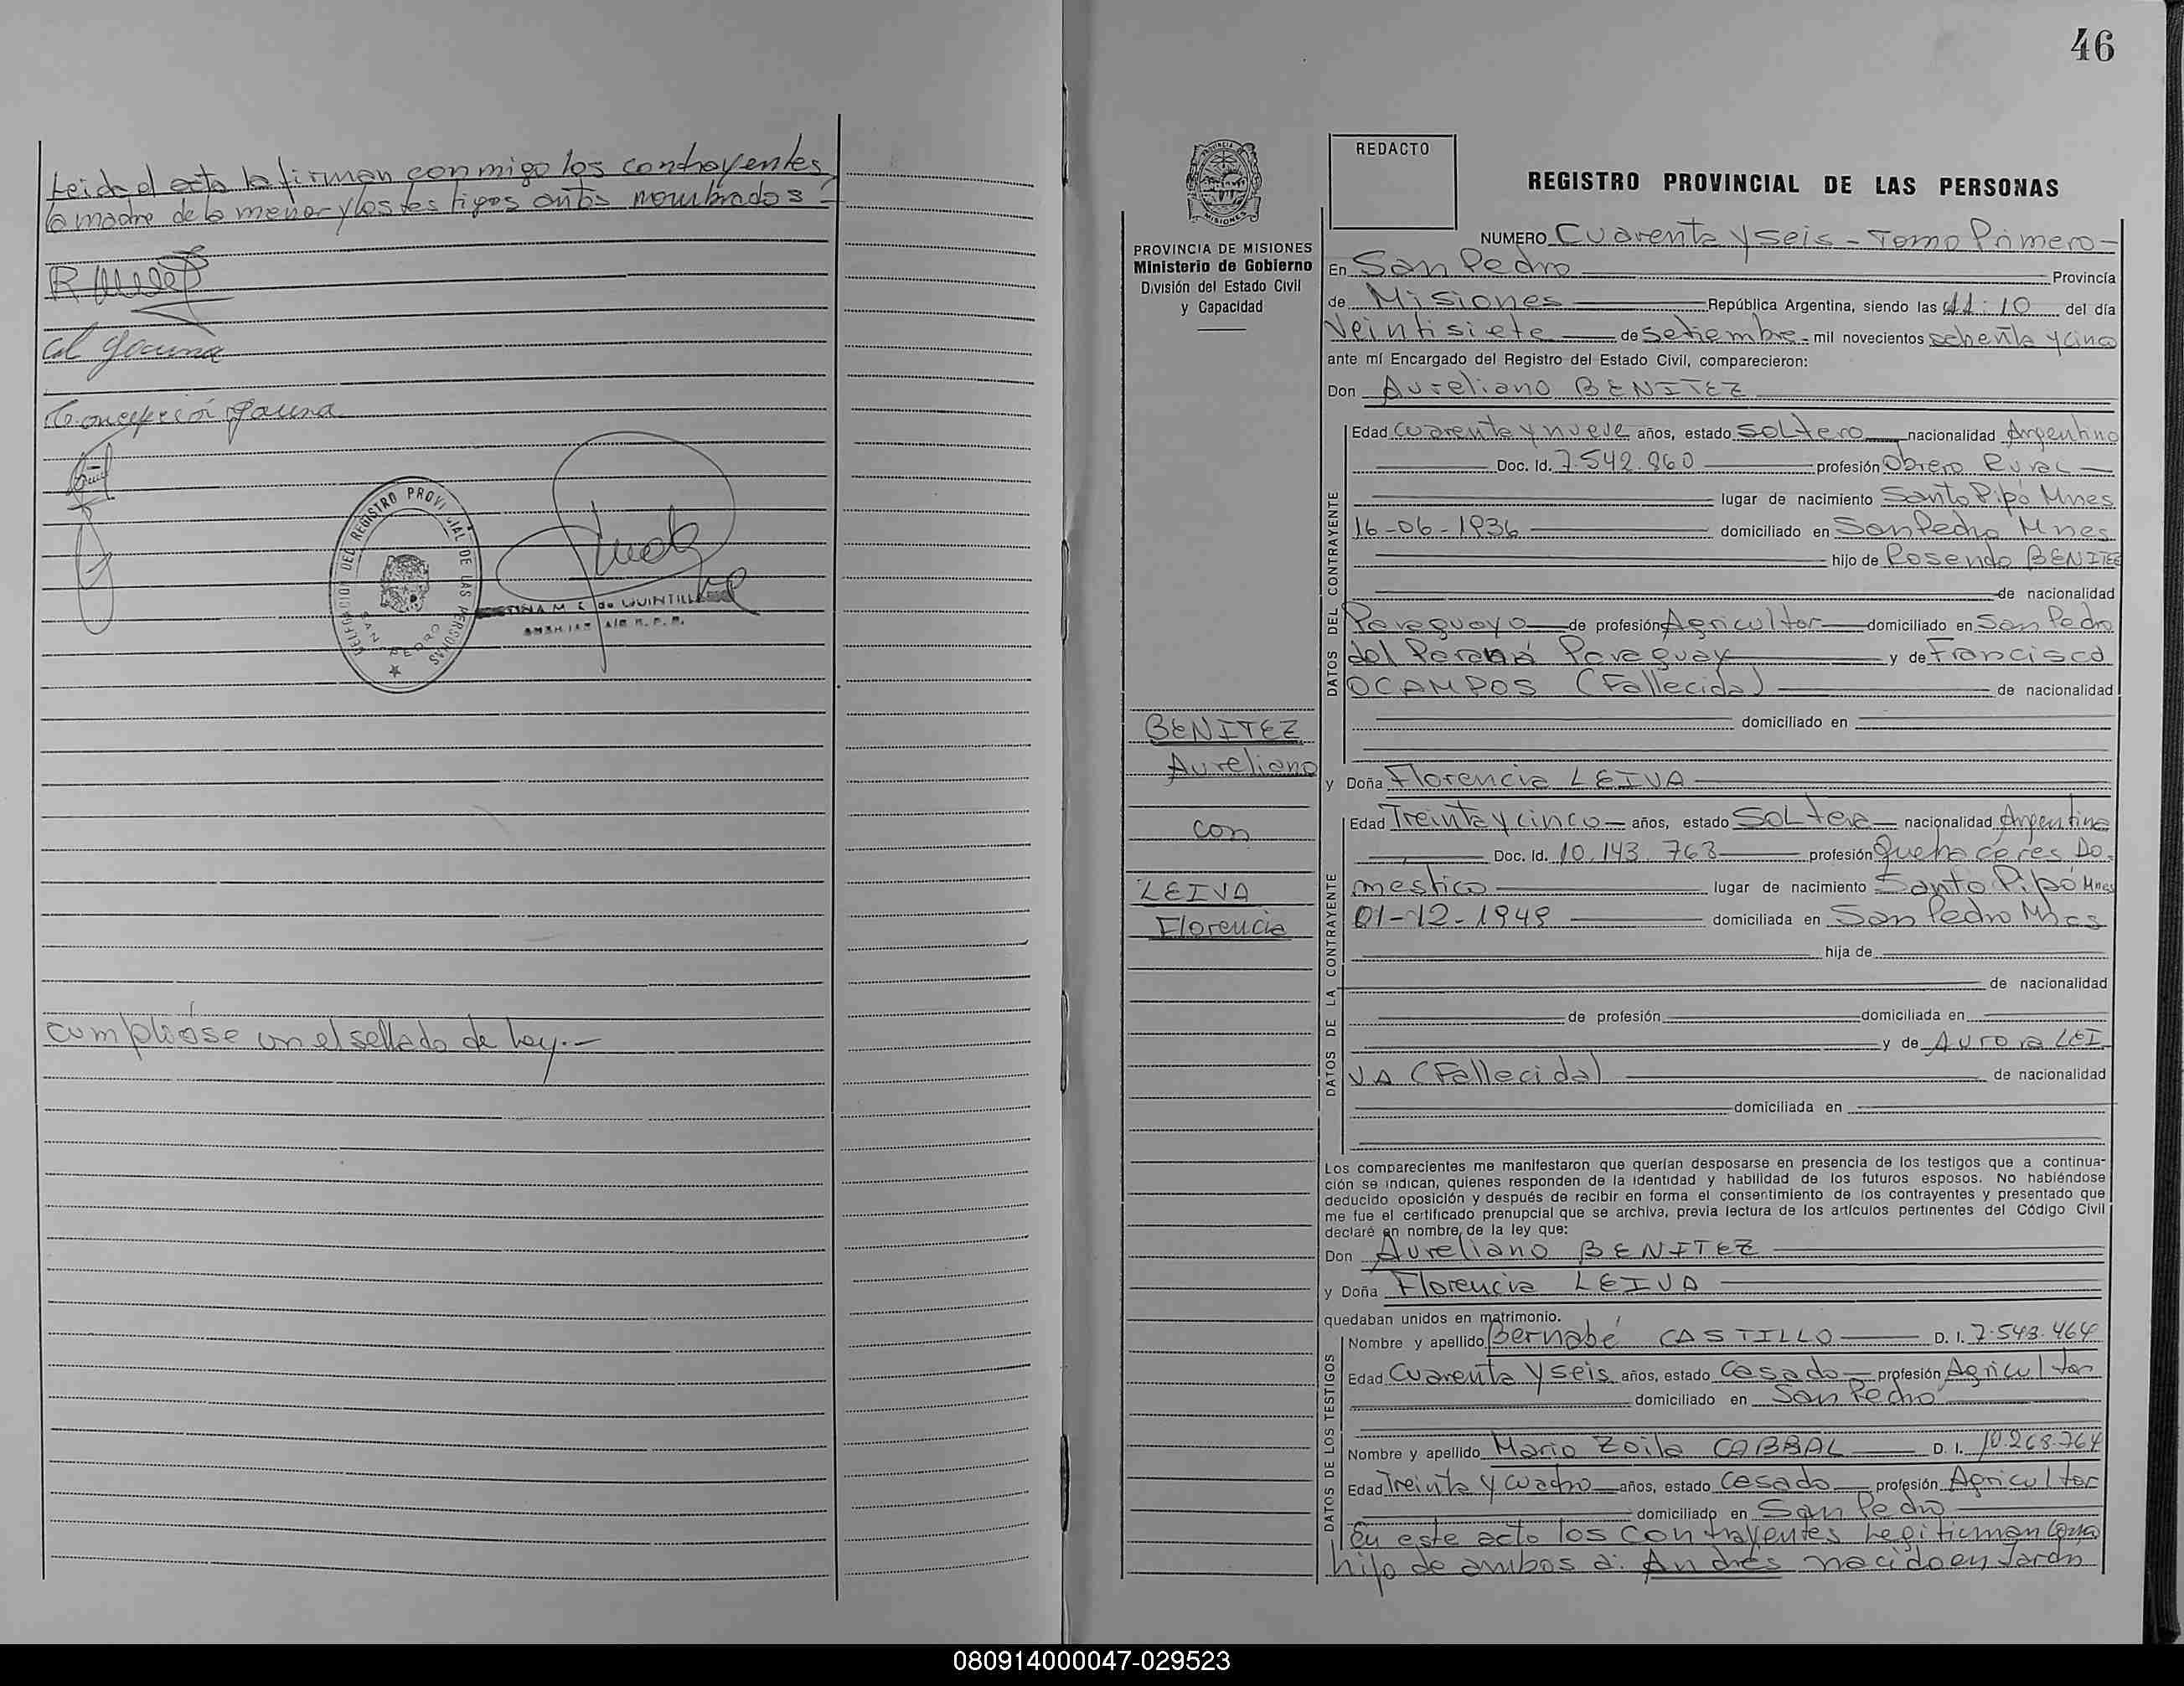 Leida el acta la firman conmigo los contrayentes
la madre de la menor y los testigos antes nombrados
Concepción Gauna
REGISTRO PROVINCIAL DE LAS PERSONAS
SAN PEDRO
cumplióse con el sellado de ley.-
46
REDACTO
REGISTRO PROVINCIAL DE LAS PERSONAS
PROVINCIA DE MISIONES
Ministerio de Gobierno
División del Estado Civil
y Capacidad
NUMERO Cuarenta y seis - Tomo Primero -
En San Pedro Provincia
de Misiones República Argentina, siendo las 11:10 del día
Veintisiete de setiembre - mil novecientos ochenta y cinco
ante mí Encargado del Registro del Estado Civil, comparecieron:
Don Aureliano BENITEZ
DATOS DEL CONTRAYENTE
Edad cuarenta y nueve años, estado Soltero nacionalidad Argentino
Doc. Id. 7.542.860 profesión Obrero Rural
lugar de nacimiento Santo Pipó Mnes
16-06-1936 domiciliado en San Pedro Mnes
hijo de Rosendo BENITEZ
de nacionalidad
Paraguayo de profesión Agricultor domiciliado en San Pedro
del Paraná Paraguay y de Francisca
OCAMPOS (Fallecida) de nacionalidad
domiciliado en
BENITEZ
Aureliano
con
LEIVA
Florencia
y Doña Florencia LEIVA
DATOS DE LA CONTRAYENTE
Edad Treinta y cinco años, estado Soltera nacionalidad Argentina
Doc. Id. 10.143.763 profesión Quehaceres Do-
mestico lugar de nacimiento Santo Pipó Mnes
01-12-1949 domiciliada en San Pedro Mnes
hija de
de nacionalidad
de profesión domiciliada en
y de Aurora LEI
VA (Fallecida) de nacionalidad
domiciliada en
Los comparecientes me manifestaron que querían desposarse en presencia de los testigos que a continua-
ción se indican, quienes responden de la identidad y habilidad de los futuros esposos. No habiéndose
deducido oposición y después de recibir en forma el consentimiento de los contrayentes y presentado que
me fue el certificado prenupcial que se archiva, previa lectura de los artículos pertinentes del Código Civil
declaré en nombre de la ley que:
Don Aureliano BENITEZ
y Doña Florencia LEIVA
quedaban unidos en matrimonio.
DATOS DE LOS TESTIGOS
Nombre y apellido Bernabé CASTILLO D. I. 7.543.464
Edad Cuarenta y seis años, estado Casado profesión Agricultor
domiciliado en San Pedro
Nombre y apellido Mario Zoilo CABRAL D. I. 10.268.764
Edad Treinta y cuatro años, estado Casado profesión Agricultor
domiciliado en San Pedro
En este acto los contrayentes legitiman como
hijo de ambos a: Andres nacido en Jardn
080914000047-029523